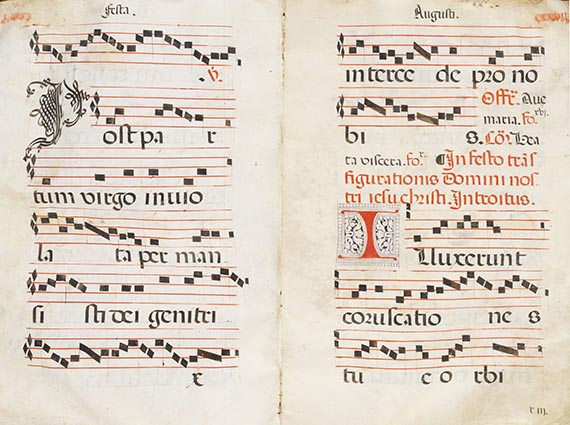 Festa.
℣.
Post pa r
tum virgo inuio
la ta per man
si sti dei genitri
x
Augusti.
interce de pro no
bi s. Offr̄. Aue
maria. fo. xbj.
Cōr. Bea
ta viscera. fo. ¶ In festo trās
figurationis Domini nos
tri iesu christi. Introitus.
Illuxerunt
coruscatio ne s
tu e orbi